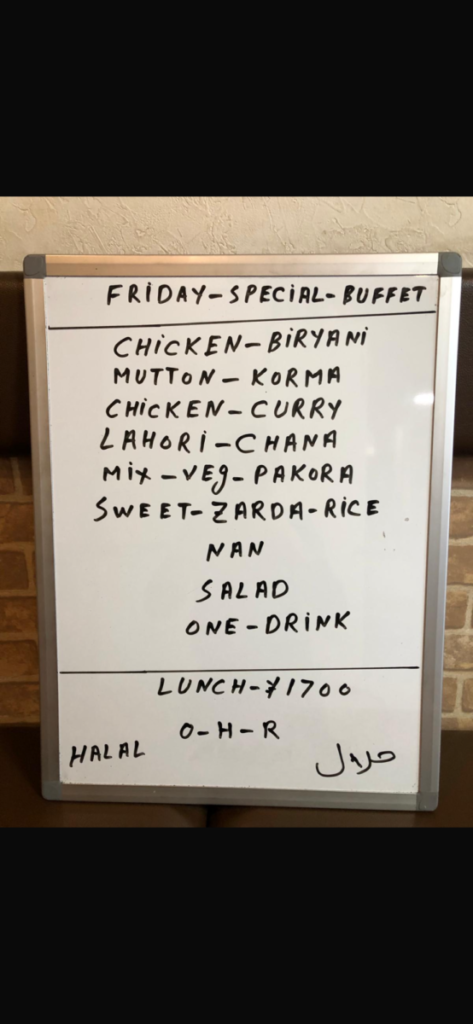 FRIDAY-SPECIAL-BUFFET
CHICKEN-BIRYANI
MUTTON-KORMA
CHICKEN-CURRY
LAHORI-CHANA
MIX-VEG-PAKORA
SWEET-ZARDA-RICE
NAN
SALAD
ONE-DRINK
LUNCH-¥1700
O-H-R
HALAL حلال